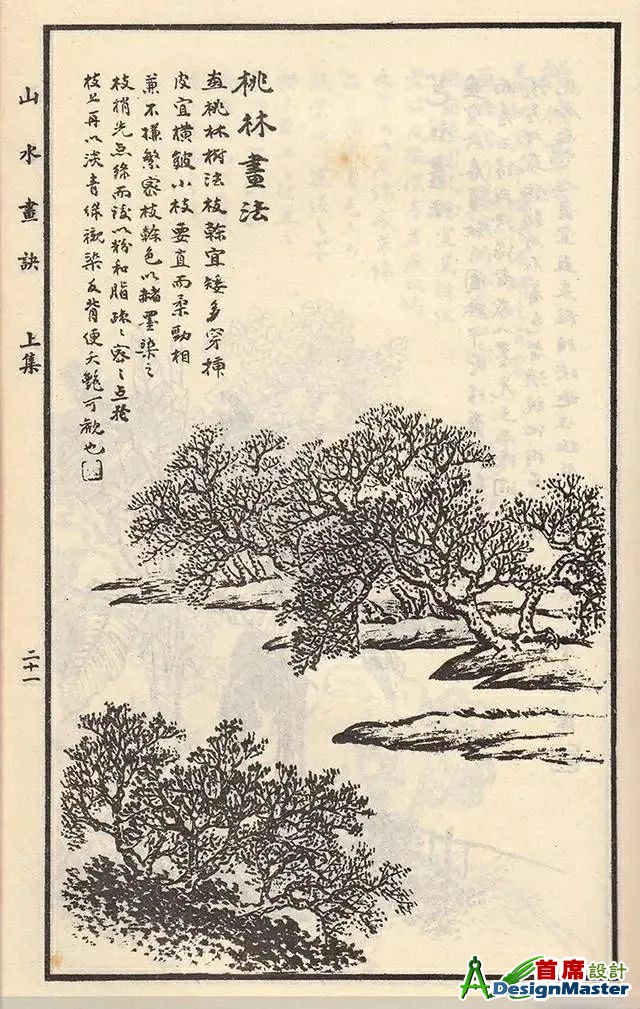 桃林畫法
畫桃林樹法枝榦宜矮多穿揷
皮宜橫皴小枝要直而柔勁相
兼不嫌繁密枝榦色以赭墨染之
枝梢先点綠而後以粉和脂踈〻密〻点於
枝上再以淡青綠襯染反背便夭艷可觀也
山水畫訣 上集
二十一
首席設計
DesignMaster